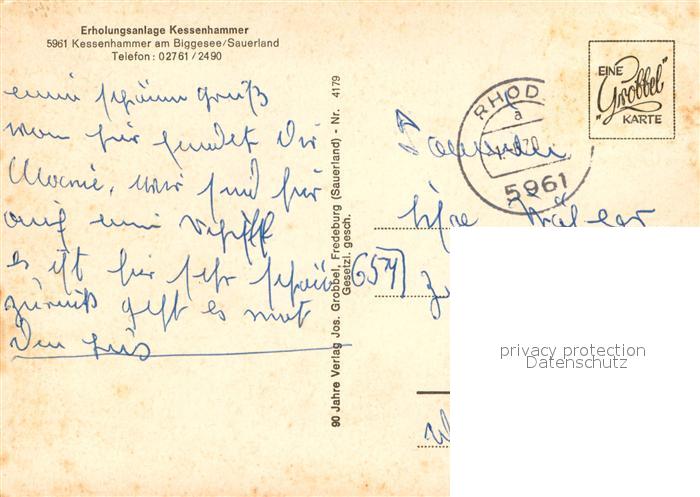 Erholungsanlage Kessenhammer
5961 Kessenhammer am Biggesee/Sauerland
Telefon: 02761/2490
einen schönen Gruß
von hier sendet Dir
wir sind hier
auf ein Schiff
es ist hier sehr schön
zurück geht es mit
den Bus
90 Jahre Verlag Jos. Grobbel, Fredeburg (Sauerland) - Nr. 4179
Gesetzl. gesch.
RHOD
a
5961
EINE
"Grobbel"
KARTE
657
privacy protection
Datenschutz